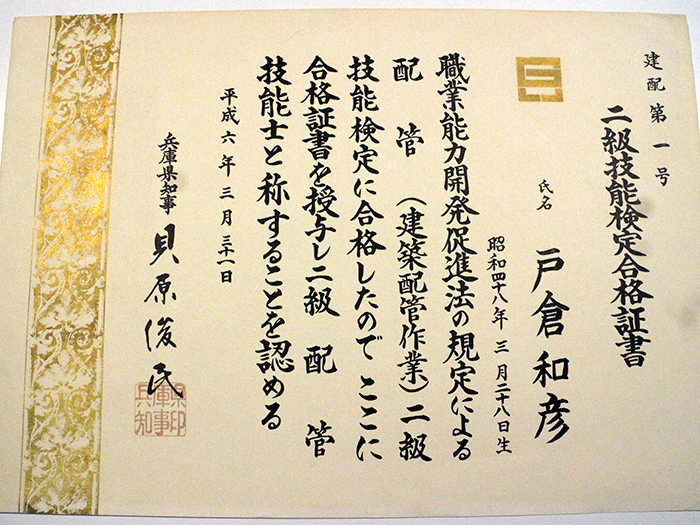 建配第一号
二級技能検定合格証書
氏名 戸倉和彦
昭和四十八年三月二十八日生
職業能力開発促進法の規定による
配管(建築配管作業)二級
技能検定に合格したのでここに
合格証書を授与し二級配管
技能士と称することを認める
平成六年三月三十一日
兵庫県知事 貝原俊民
兵庫県知事印